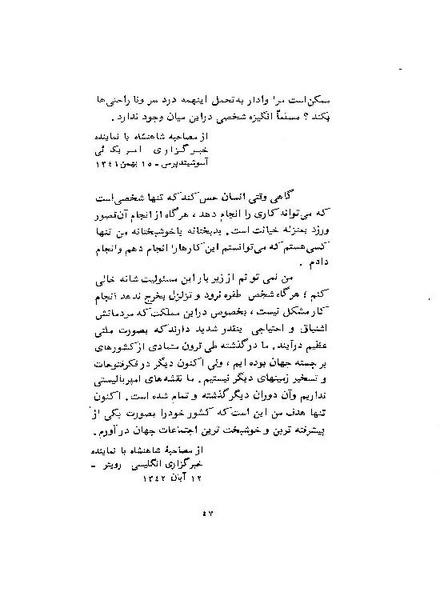 ممکن است مرا وادار به تحمل اینهمه درد سر و نا راحتی‌ها
بکند ؟ مسلماً انگیزه شخصی در این میان وجود ندارد .
از مصاحبه شاهنشاه با نماینده
خبرگزاری امریکائی
آسوشیتدپرس - ۱۵ بهمن ۱۳۴۱
گاهی وقتی انسان حس کند که تنها شخصی است
که می‌تواند کاری را انجام دهد ، هرگاه از انجام آن قصور
ورزد بمنزله خیانت است . بدبختانه یا خوشبختانه من تنها
کسی هستم که می‌توانستم این کارها را انجام دهم و انجام
دادم .
من نمی توانم از زیر بار این مسئولیت شانه خالی
کنم ؛ هرگاه شخص طفره نرود و تزلزل بخرج ندهد انجام
کار مشکل نیست ، بخصوص در این مملکت که مردمانش
اشتیاق و احتیاجی اینقدر شدید دارند که بصورت ملتی
عظیم درآیند . ما در گذشته طی قرون متمادی از کشورهای
برجسته جهان بوده ایم ، ولی اکنون دیگر در فکر فتوحات
و تسخیر زمینهای دیگر نیستیم . ما نقشه‌های امپریالیستی
نداریم و آن دوران دیگر گذشته و تمام شده است . اکنون
تنها هدف من این است که کشور خود را بصورت یکی از
پیشرفته ترین و خوشبخت ترین اجتماعات جهان در آورم .
از مصاحبهٔ شاهنشاه با نماینده
خبرگزاری انگلیسی رویتر -
۱۲ آبان ۱۳۴۲
۴۷